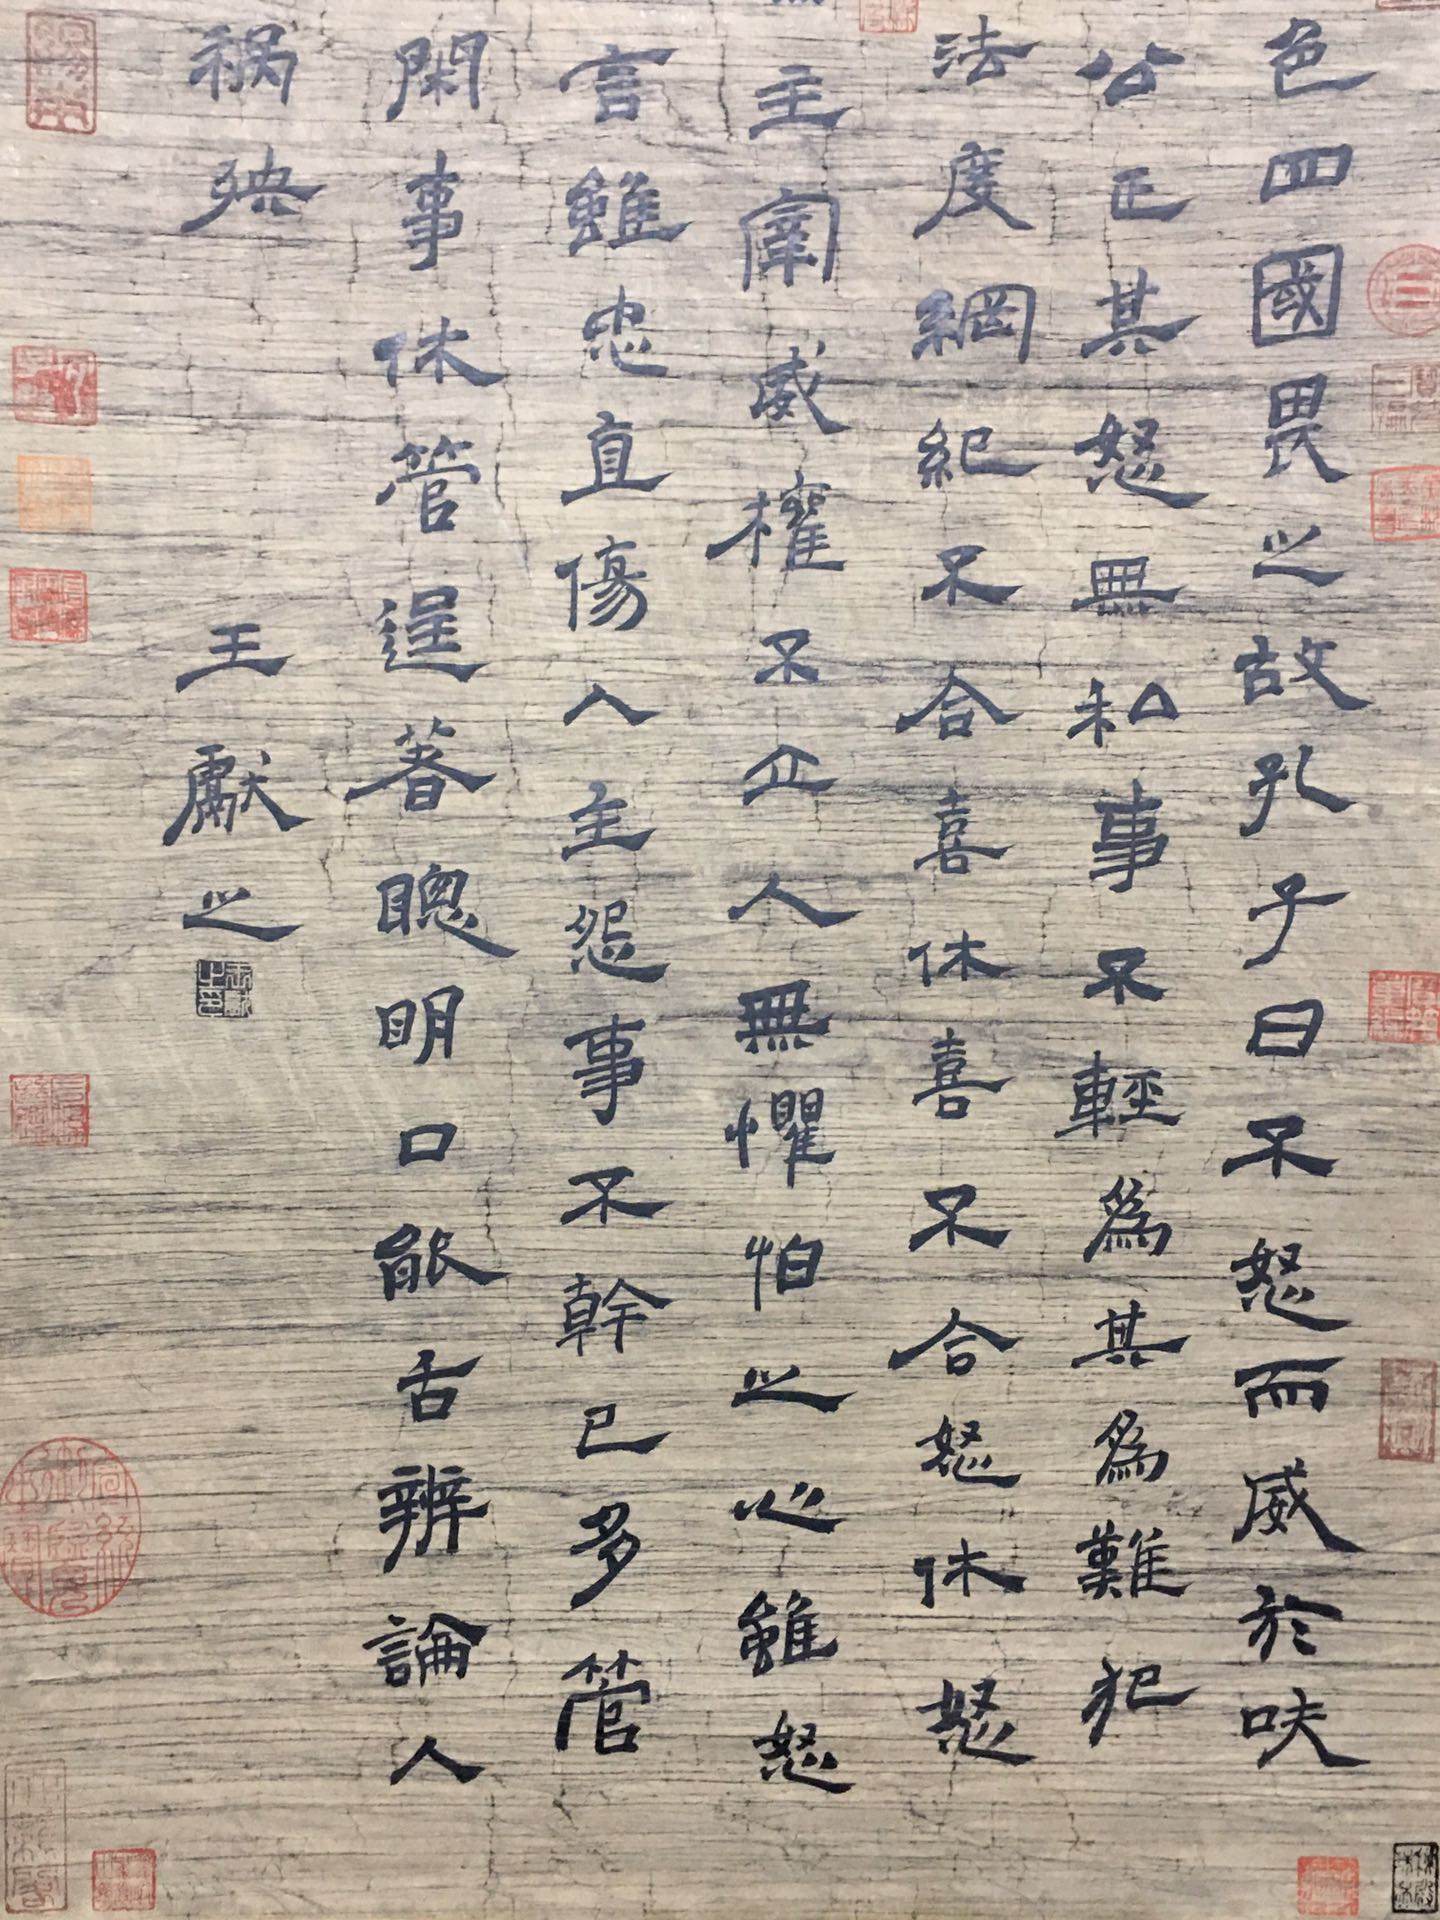 色四國畏之故孔子曰不怒而威於呋
公正其怒無私事不輕為其為難犯
法度綱紀不合喜休喜不合怒休怒
主宰威權不立人無懼怕之心雖怒
言雖忠直傷人主怨事不幹已多管
閑事休管逞著聰明口能舌辨論人
祸殃 王獻之